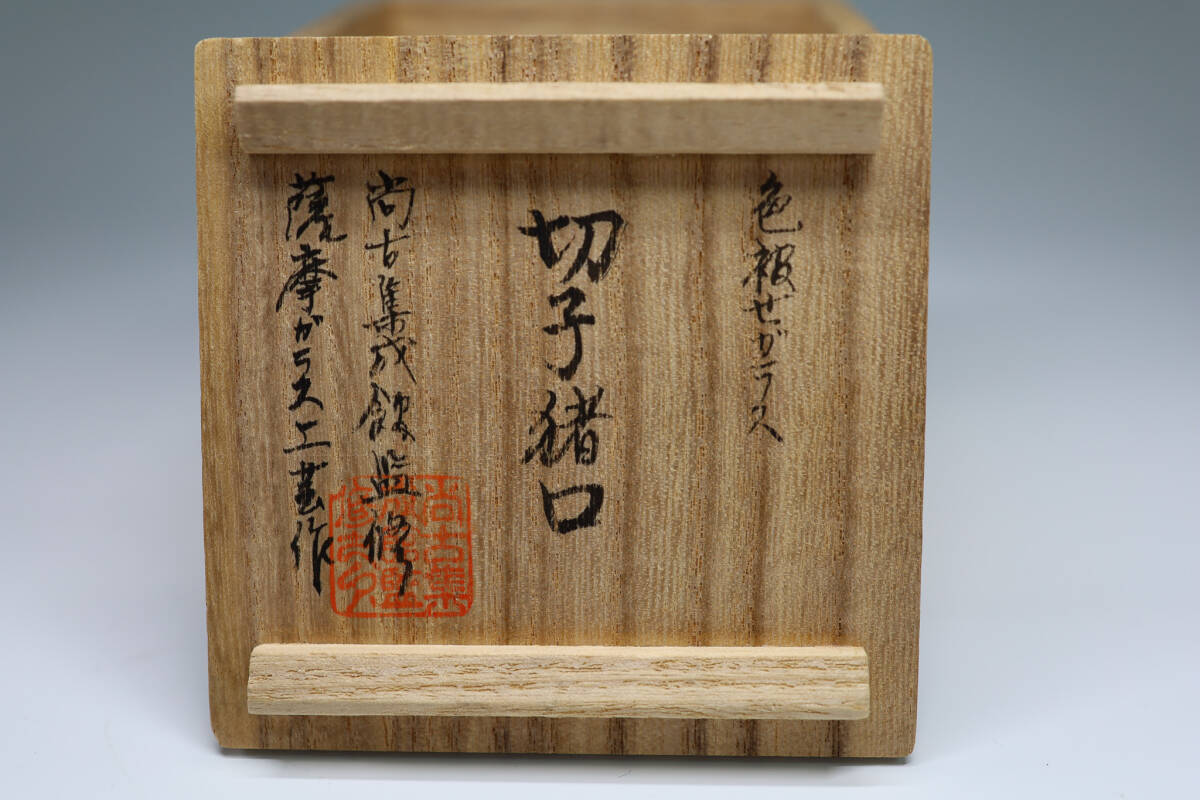 色被せガラス
切子猪口
尚古集成館監修
薩摩ガラス工芸作
尚古集